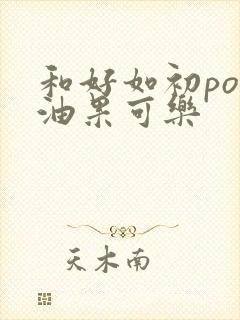 和好如初po
油果可樂
天木南